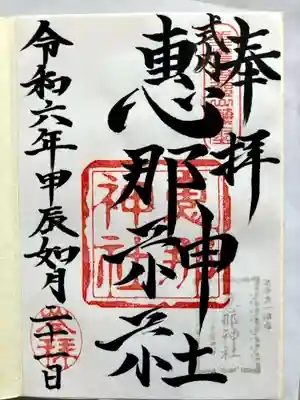 奉拝
式内
惠那神社
惠那
神社
那神社
令和六年甲辰如月二十一日